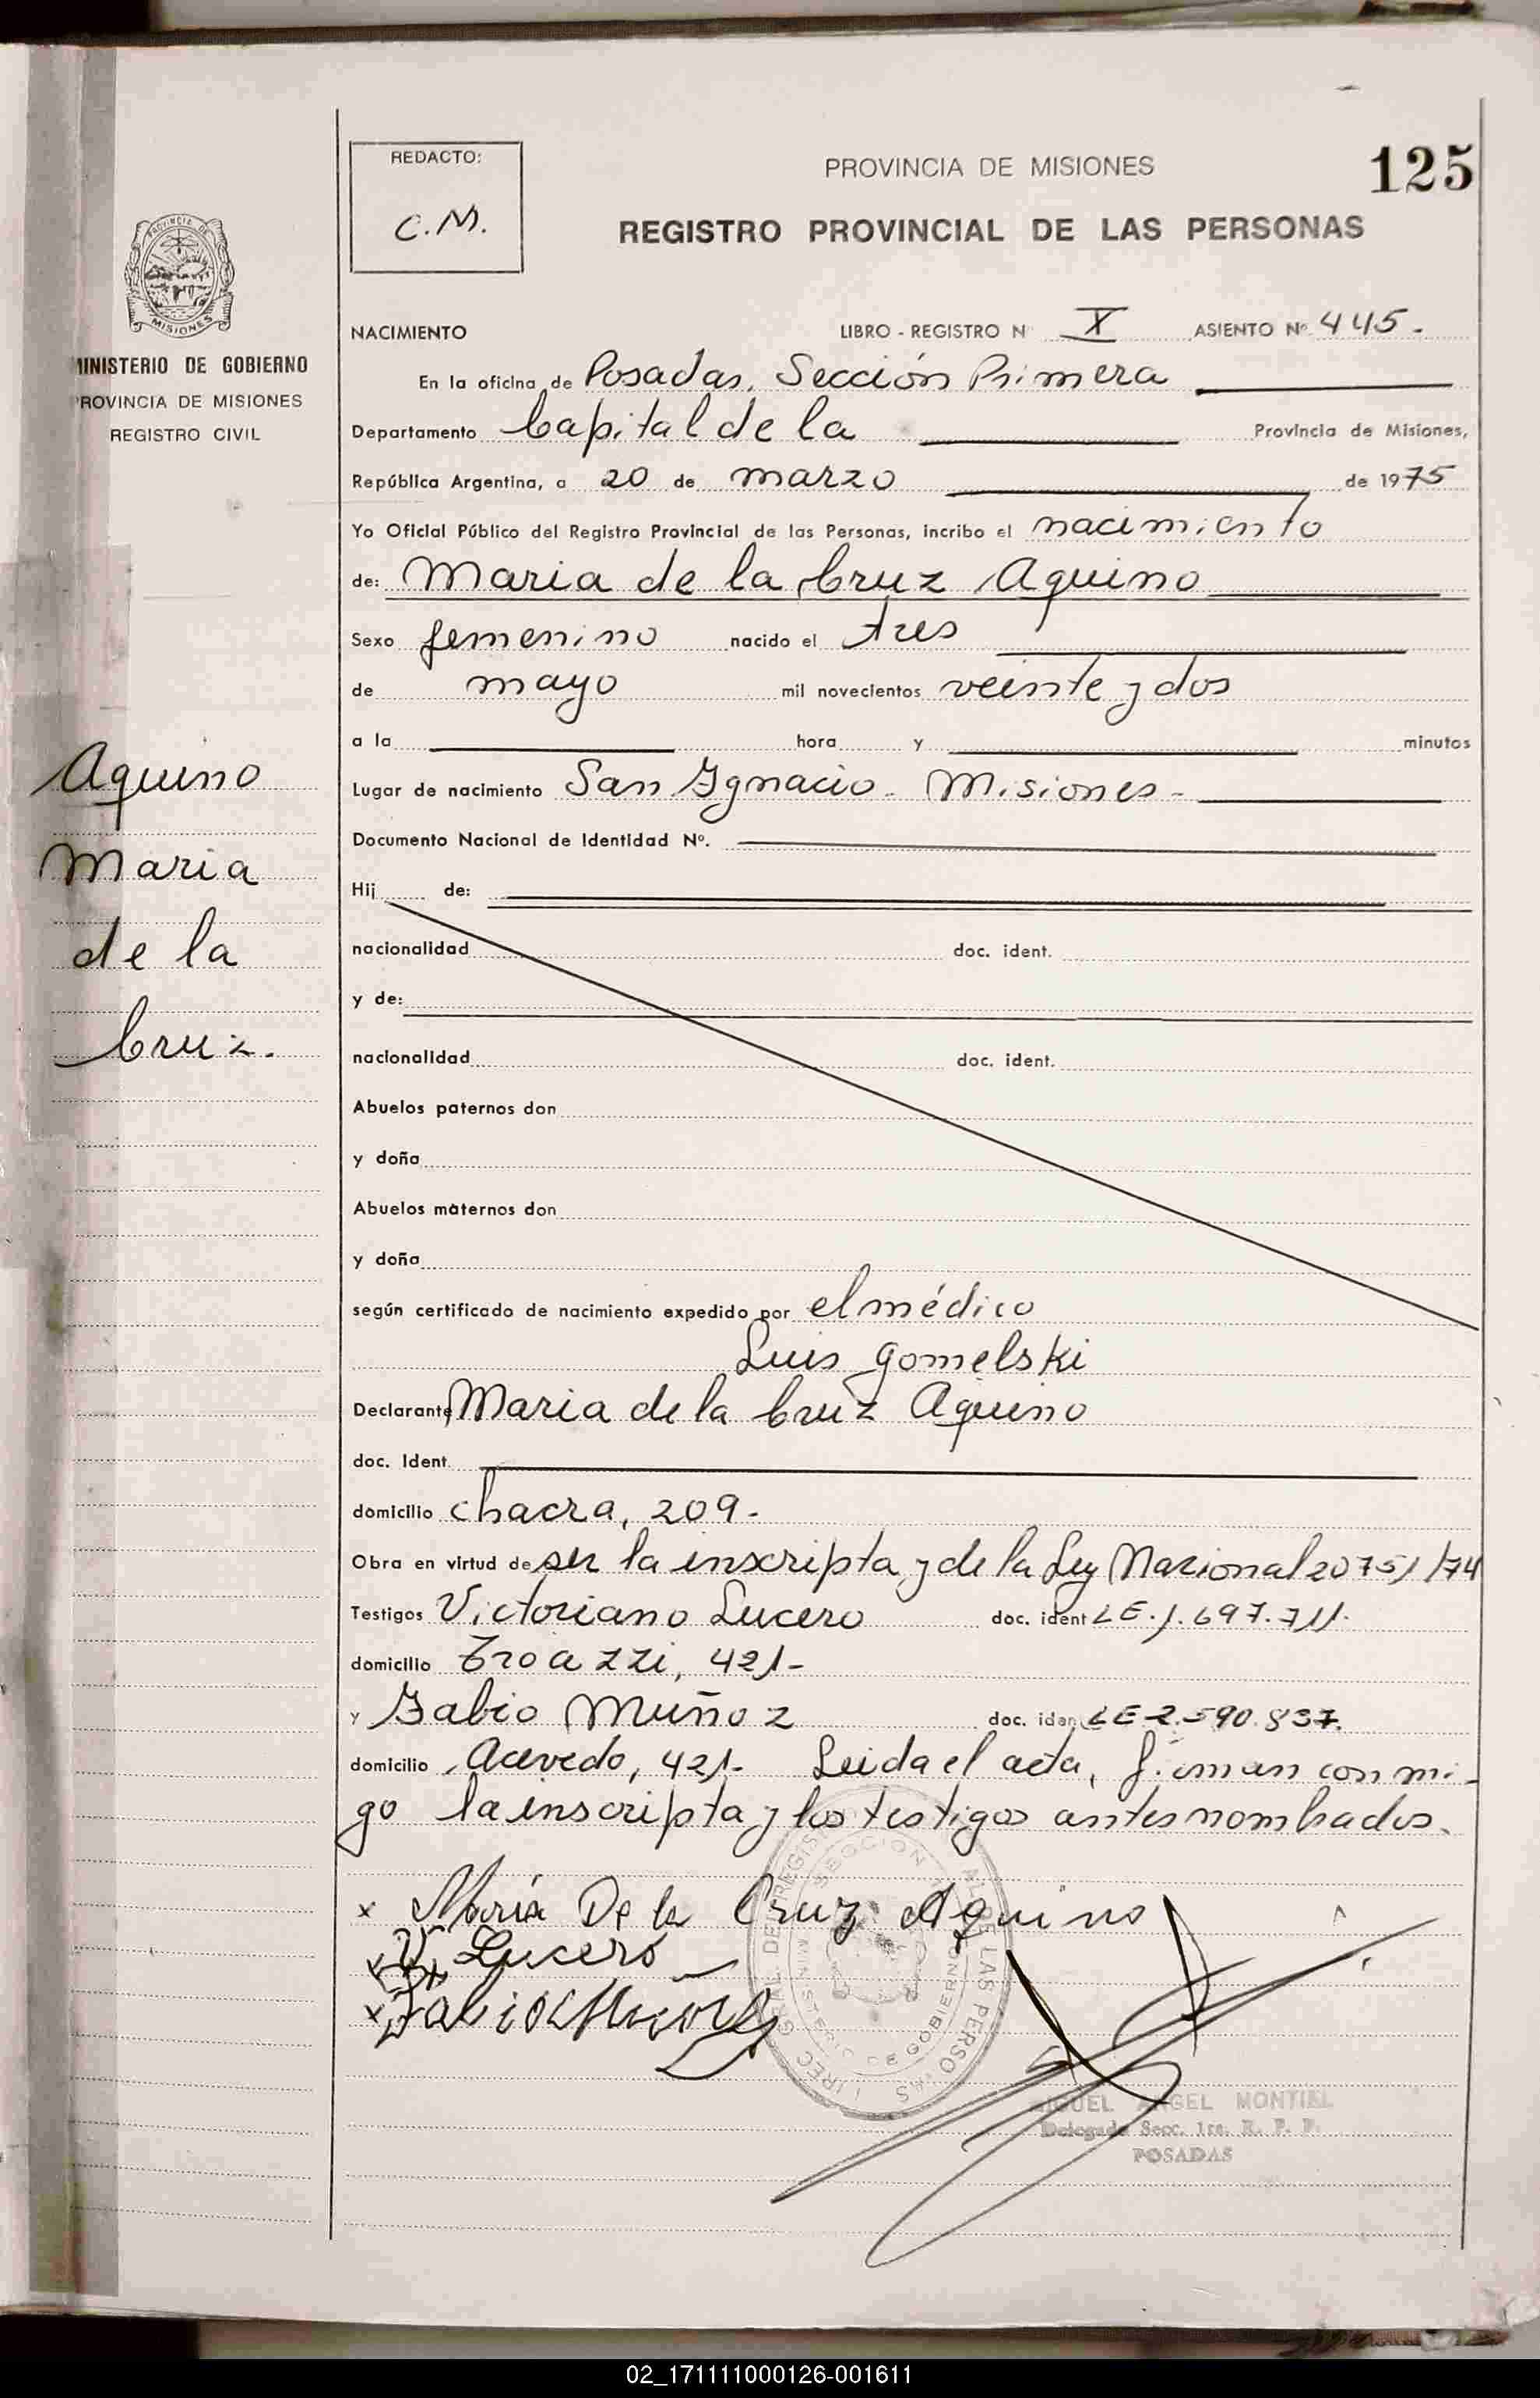 125
REDACTO:
C.M.
PROVINCIA DE MISIONES
REGISTRO PROVINCIAL DE LAS PERSONAS
PROVINCIA DE
MISIONES
MINISTERIO DE GOBIERNO
PROVINCIA DE MISIONES
REGISTRO CIVIL
NACIMIENTO LIBRO - REGISTRO N X ASIENTO Nº 445.
En la oficina de Posadas. Sección Primera
Departamento Capital de la Provincia de Misiones,
República Argentina, a 20 de marzo de 1975
Yo Oficial Público del Registro Provincial de las Personas, incribo el nacimiento
de: Maria de la Cruz Aquino
Sexo femenino nacido el tres
de mayo mil novecientos veinte y dos
a la hora y minutos
Lugar de nacimiento San Ygnacio. Misiones -
Documento Nacional de Identidad Nº.
Hij de:
nacionalidad doc. ident.
y de:
nacionalidad doc. ident.
Abuelos paternos don
y doña
Abuelos maternos don
y doña
según certificado de nacimiento expedido por el médico
Luis Gomelski
Declarante Maria de la Cruz Aquino
doc. Ident.
domicilio chacra, 209.-
Obra en virtud de ser la inscripta y de la Ley Nacional 20751/74
Testigos Victoriano Lucero doc. ident LE.1.697.711.
domicilio 421-
y Fabio Muñoz doc. iden LE 2.590.837.
domicilio Acevedo, 421- Leida el acta, firman conmi-
go la inscripta y los testigos antes nombrados.
Aquino
Maria
de la
Cruz.
x María De la Cruz Aquino
x V. Lucero
x Fabio Muñoz
SECCION
MINISTERIO DE GOBIERNO
MIGUEL ANGEL MONTIEL
Delegado Secc. 1ra. R. P. P.
POSADAS
02_171111000126-001611